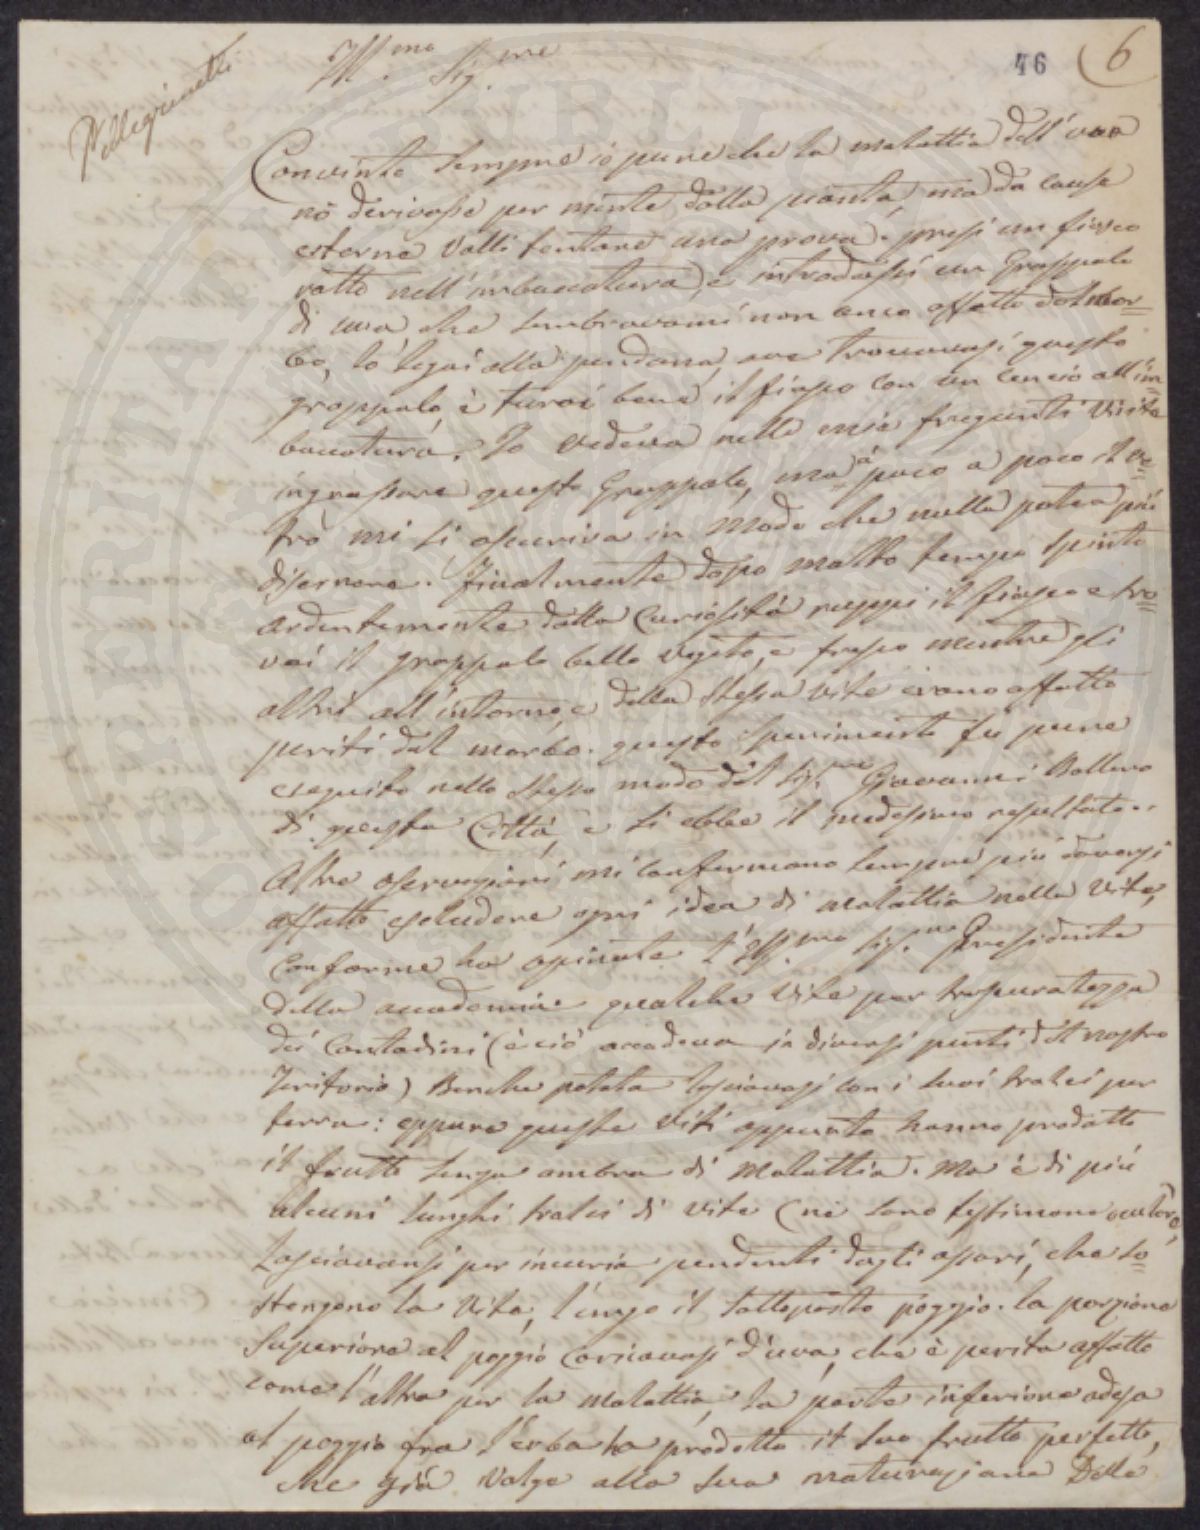 46 6
Pellegrinetti
Ill.mo Sig.re
Convinto sempre io pure che la malattia dell'uva
nō derivasse per niente dalla pianta, ma da cause
esterne volli tentare una prova. presi un fiasco
rotto nell'imboccatura, e introdussi un Grappolo
di uva che sembravami non anco affetto dal mor=
bo, lo legai alla pendana, ove trovavasi questo
grappolo, è turai bene il fiasco con un cencio all'im=
boccatura. Io vedeva nelle mie frequenti visite
ingrossare questo Grappolo, ma à poco a poco il ve=
tro mi si oscuriva in modo che nulla potea più
discernere. Finalmente dopo molto tempo spinto
ardentemente dalla curiosità ruppi il fiasco e tro=
vai il grappolo bello vegeto, e fresco mentre gli
altri all'intorno, e della stessa vite erano affatto
periti dal morbo. questo sperimento fu pure
eseguito nello stesso modo dal Sig.re Giovanni
di questa Città, e si ebbe il medesimo resultato.
Altre osservazioni mi confermano sempre più doversi
affatto escludere ogni idea di malattia nella vite,
conforme ha opinato l'Ill.mo Sig.re Presidente
della accademia. qualche vite per trascuratezza
dei Contadini (è ciò accadeva in diversi punti del nostro
Teritorio) Benche potata lasciavasi con i suoi tralci per
terra: eppure queste viti appunto hanno prodotto
il frutto senza ombra di malattia. Ma è di più
alcuni lunghi tralci di vite (ne sono testimone oculare)
Lasciavansi per incuria pendenti dagli , che so=
stengono la vite, lungo il sottoposto poggio. la porzione
superiore al poggio caricavasi d'uva, che è perita affatto
come l'altra per la malattia, la parte inferiore adesa
al poggio fra l'erba ha prodotto il suo frutto perfetto,
che già volge alla sua maturazione Delle